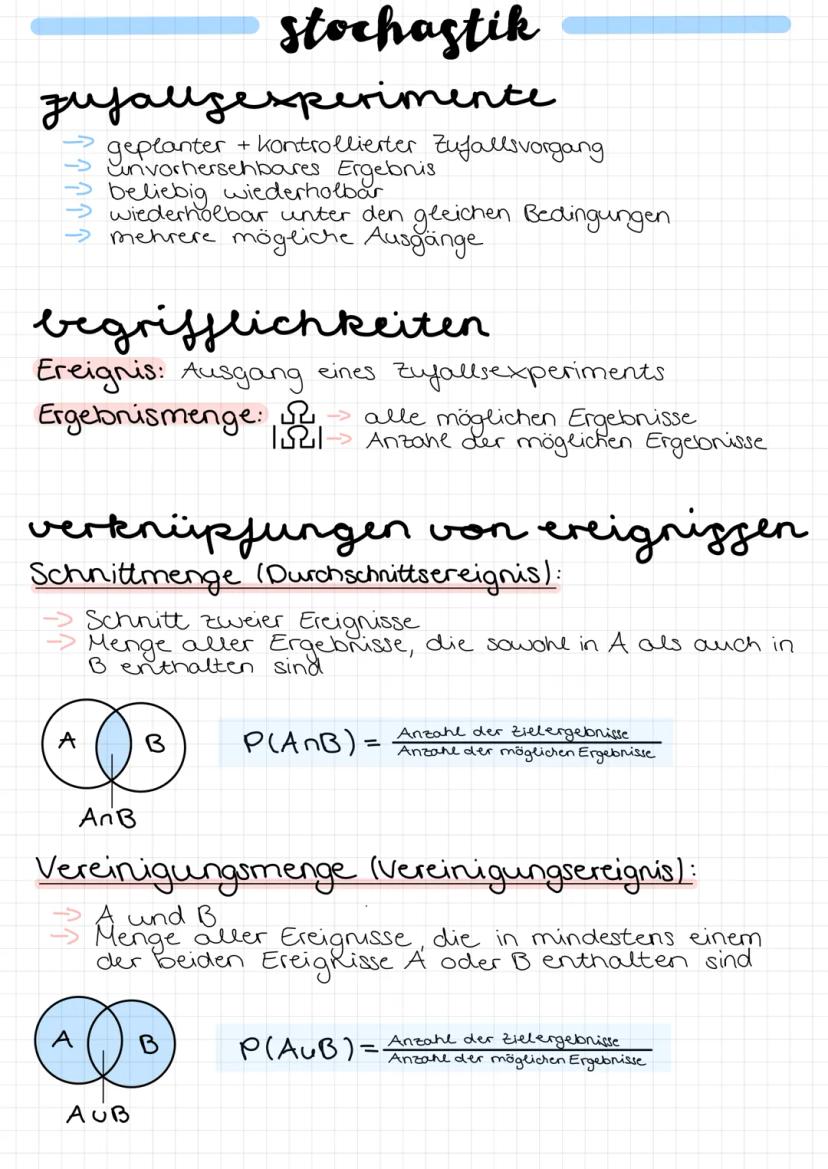 stochastik
zufallsexperimente
→ geplanter + kontrollierter Zufallsvorgang
→ unvorhersehbares Ergebnis
→ beliebig wiederholbar
→ wiederholbar unter den gleichen Bedingungen
→ mehrere mögliche Ausgänge
begrifflichkeiten
Ereignis: Ausgang eines Zufallsexperiments
Ergebnismenge: Ω → alle möglichen Ergebnisse
|Ω| → Anzahl der möglichen Ergebnisse
verknüpfungen von ereignissen
Schnittmenge (Durchschnittsereignis):
→ Schnitt zweier Ereignisse
→ Menge aller Ergebnisse, die sowohl in A als auch in
B enthalten sind
A B
P(A∩B) = Anzahl der Zielergebnisse
Anzahl der möglichen Ergebnisse
A∩B
Vereinigungsmenge (Vereinigungsereignis):
→ A und B
→ Menge aller Ereignisse, die in mindestens einem
der beiden Ereignisse A oder B enthalten sind
A B
P(A∪B) = Anzahl der Zielergebnisse
Anzahl der möglichen Ergebnisse
A∪B